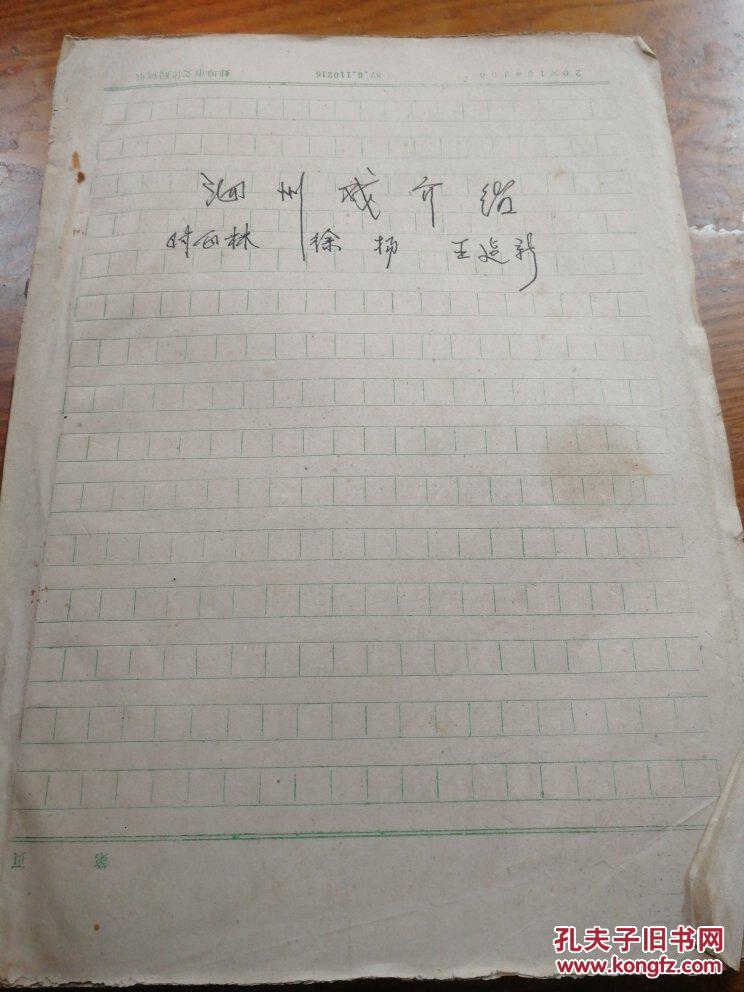 蚌埠市文化局稿纸 87.6.110216 20×15=300
泗州城介绍
时西林 徐杨 王延新
第 页
孔夫子旧书网
www.kongfz.com